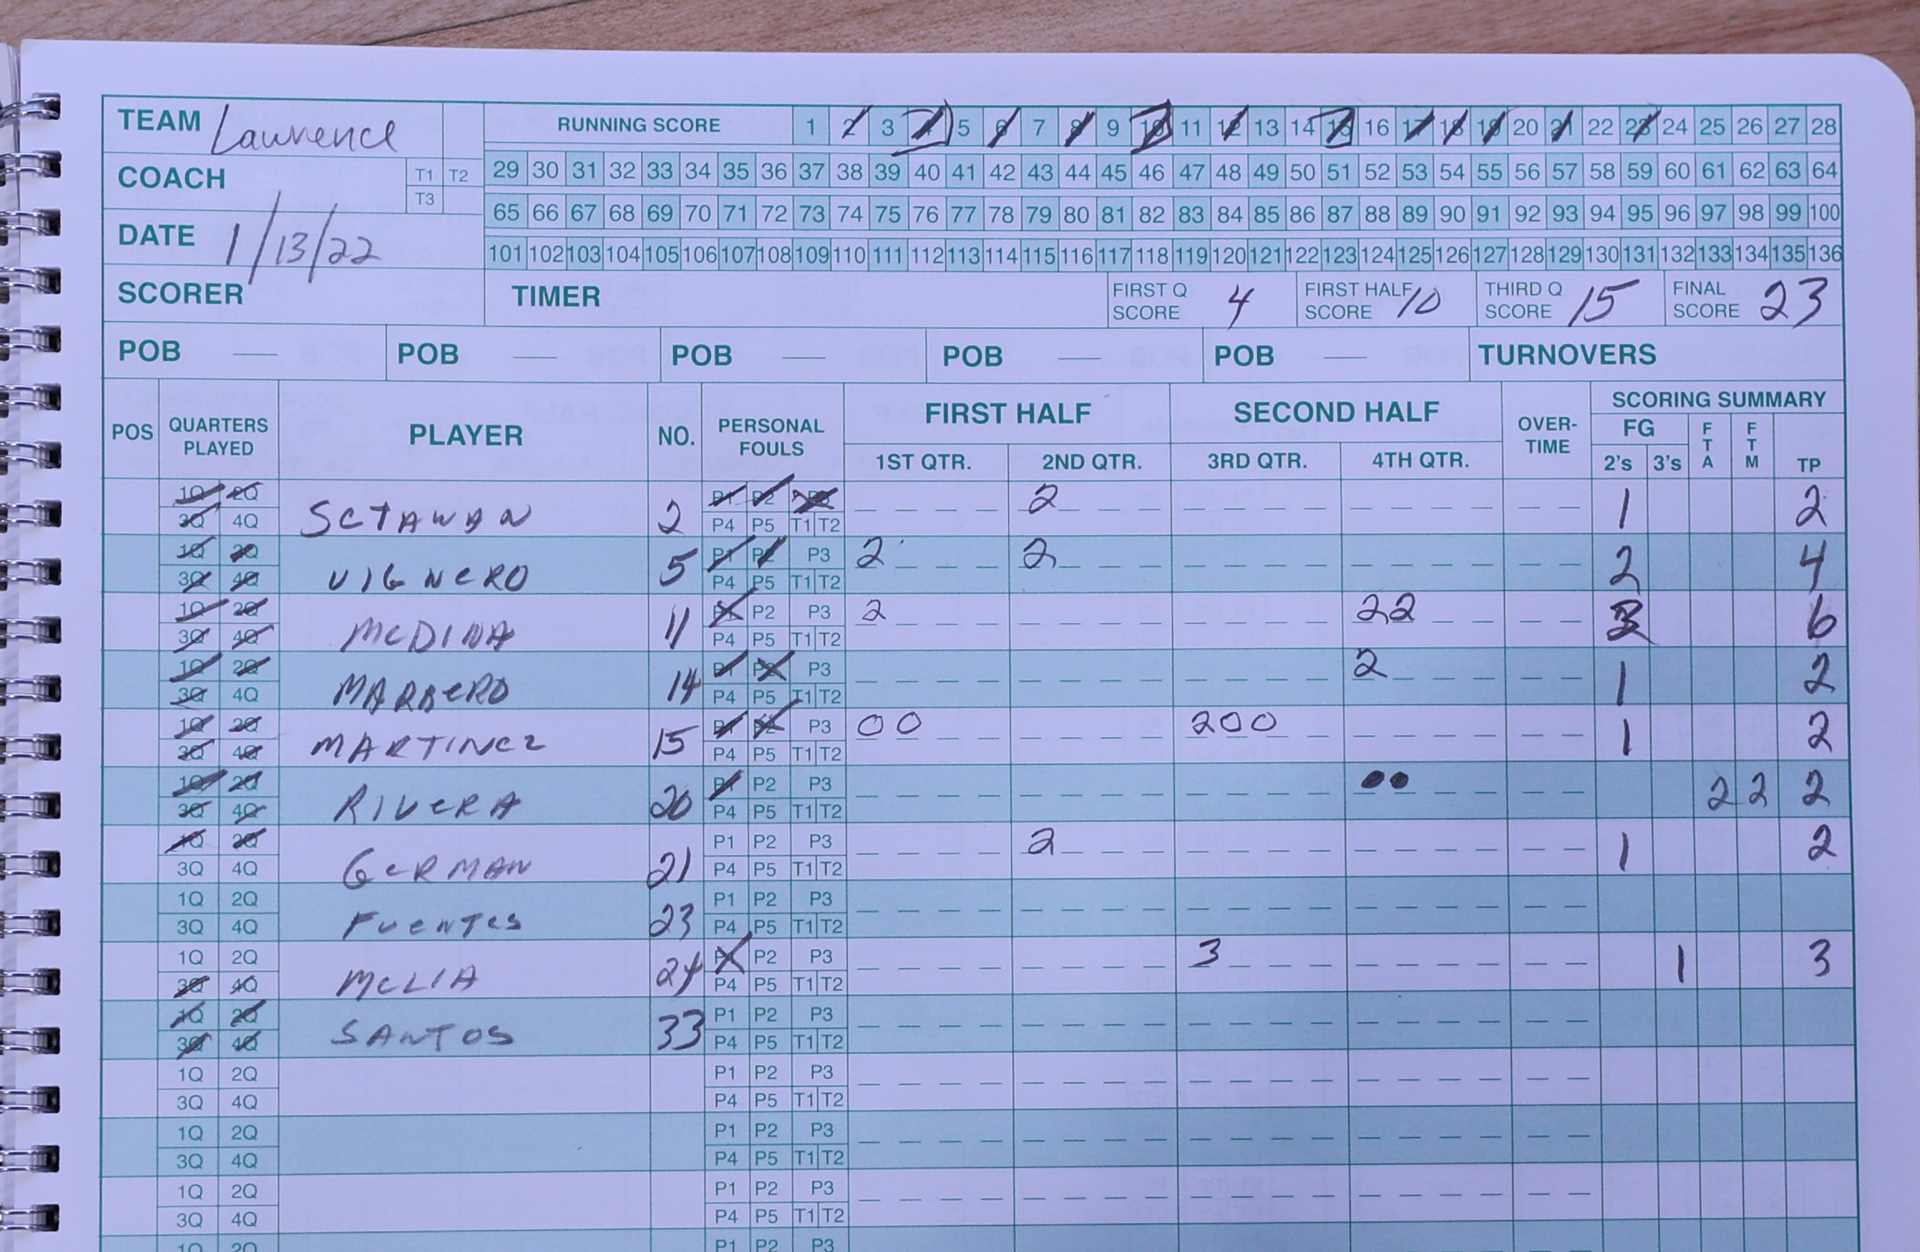 TEAM Lawrence RUNNING SCORE 1 2 3 4 5 6 7 8 9 10 11 12 13 14 15 16 17 18 19 20 21 22 23 24 25 26 27 28
COACH T1 T2 T3 29 30 31 32 33 34 35 36 37 38 39 40 41 42 43 44 45 46 47 48 49 50 51 52 53 54 55 56 57 58 59 60 61 62 63 64
65 66 67 68 69 70 71 72 73 74 75 76 77 78 79 80 81 82 83 84 85 86 87 88 89 90 91 92 93 94 95 96 97 98 99 100
DATE 1/13/22 101 102 103 104 105 106 107 108 109 110 111 112 113 114 115 116 117 118 119 120 121 122 123 124 125 126 127 128 129 130 131 132 133 134 135 136
SCORER TIMER FIRST Q SCORE 4 FIRST HALF SCORE 10 THIRD Q SCORE 15 FINAL SCORE 23
POB — POB — POB — POB — POB — TURNOVERS
POS QUARTERS PLAYED PLAYER NO. PERSONAL FOULS FIRST HALF SECOND HALF OVER-TIME SCORING SUMMARY
1ST QTR. 2ND QTR. 3RD QTR. 4TH QTR. FG 2's 3's FTA FTM TP
1Q 2Q P1 P2 P3
3Q 4Q SCTAWAN 2 P4 P5 T1 T2 2 1 2
1Q 2Q P1 P2 P3
3Q 4Q VIGNERO 5 P4 P5 T1 T2 2 2 2 4
1Q 2Q P1 P2 P3
3Q 4Q MEDINA 11 P4 P5 T1 T2 2 22 3 6
1Q 2Q P1 P2 P3
3Q 4Q MARRERO 14 P4 P5 T1 T2 2 1 2
1Q 2Q P1 P2 P3
3Q 4Q MARTINEZ 15 P4 P5 T1 T2 00 200 1 2
1Q 2Q P1 P2 P3
3Q 4Q RIVERA 20 P4 P5 T1 T2 ●● 2 2 2
1Q 2Q P1 P2 P3
3Q 4Q GERMAN 21 P4 P5 T1 T2 2 1 2
1Q 2Q P1 P2 P3
3Q 4Q FUENTES 23 P4 P5 T1 T2
1Q 2Q P1 P2 P3
3Q 4Q MELIA 24 P4 P5 T1 T2 3 1 3
1Q 2Q P1 P2 P3
3Q 4Q SANTOS 33 P4 P5 T1 T2
1Q 2Q P1 P2 P3
3Q 4Q P4 P5 T1 T2
1Q 2Q P1 P2 P3
3Q 4Q P4 P5 T1 T2
1Q 2Q P1 P2 P3
3Q 4Q P4 P5 T1 T2
1Q 2Q P1 P2 P3